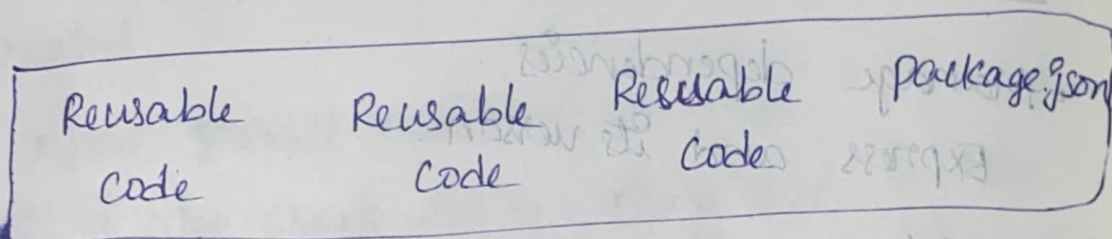 Reusable code
Reusable code
Resusable code
package.json